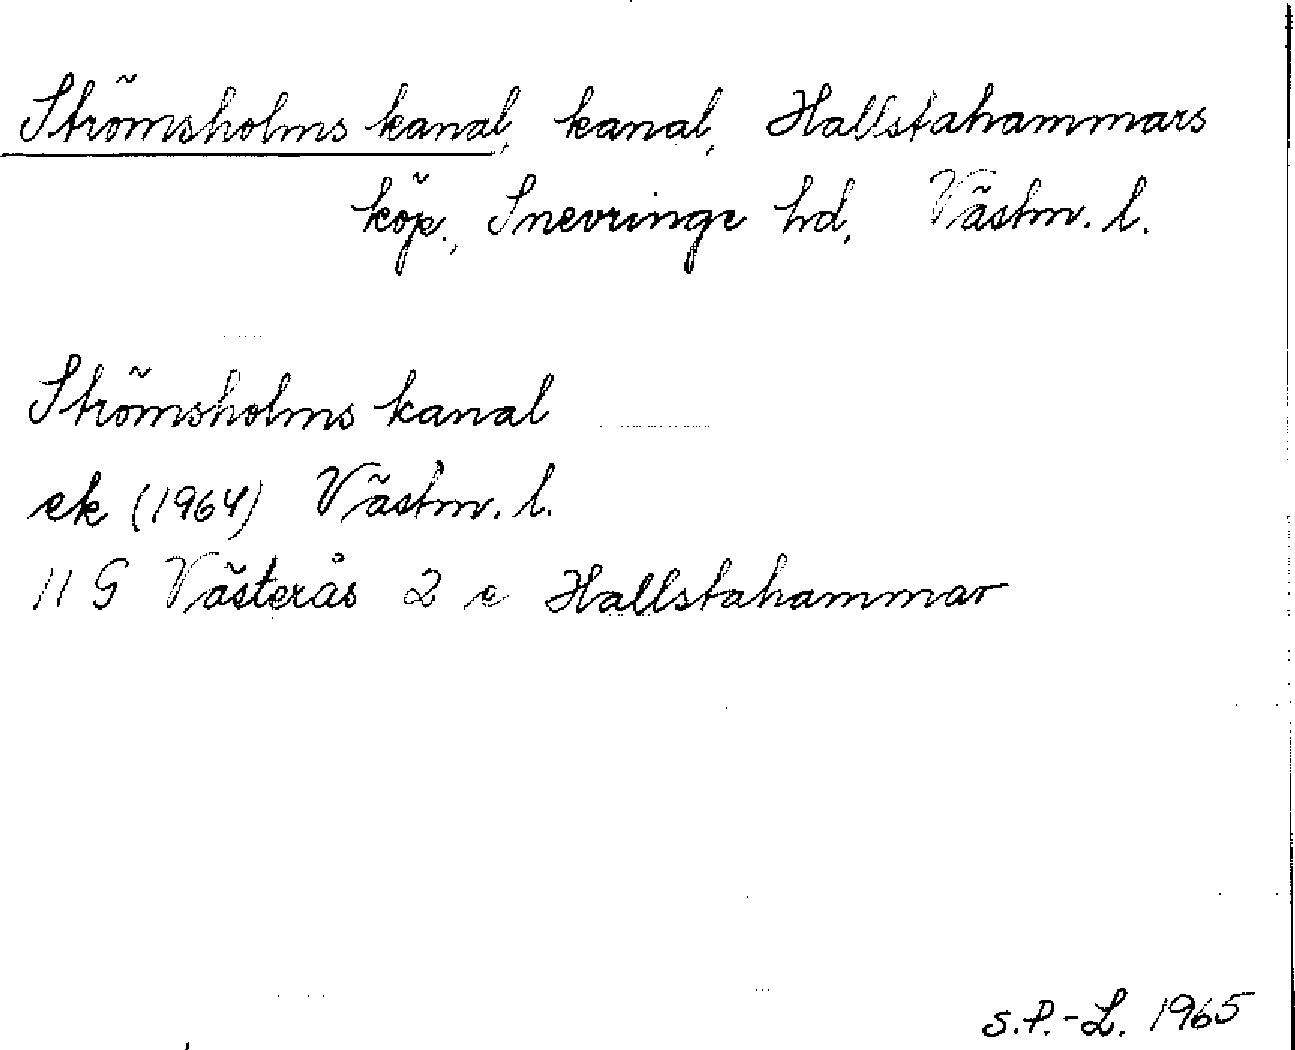 Strömsholms kanal, kanal, Hallstahammars
köp., Snevringe hd, Västm. l.
Strömsholms kanal
ek (1964) Västm. l.
11 G Västerås 2 e Hallstahammar
S.P.-L. 1965